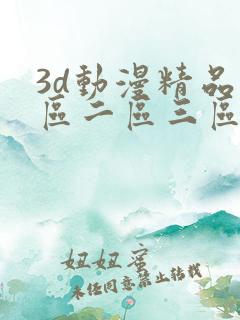 3d動漫精品
區二區三區
妞妞蜜
未經同意禁止轉載